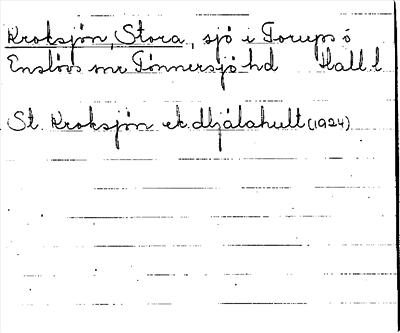 Kroksjön, Stora, sjö i Torups o
Enslövs snr Tönnersjö hd Hall. l
St. Kroksjön ek Hjälahult (1924)